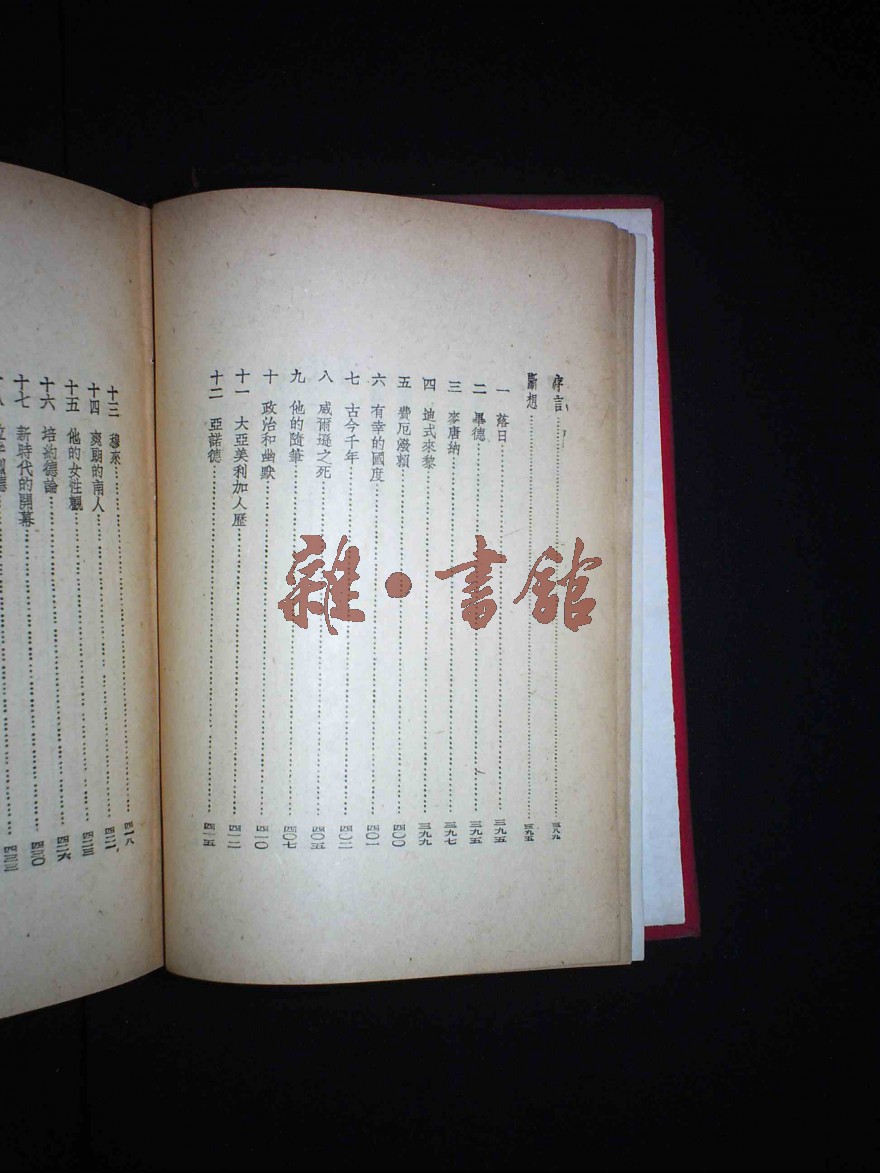 序言……三八九
斷想……三九五
一 落日……三九五
二 畢德……三九五
三 麥唐納……三九七
四 迪式來黎……三九九
五 費厄潑賴……四〇〇
六 有幸的國度……四〇一
七 古今千年……四〇二
八 威爾遜之死……四〇五
九 他的隨筆……四〇七
十 政治和幽默……四一〇
十一 大亞美利加人歷……四一二
十二 亞諾德……四一五
十三 穆來……四一八
十四 爽朗的南人……四二一
十五 他的女性觀……四二三
十六 培約德論……四二六
十七 新時代的開幕……四三〇
十八
四三三
雜·書館